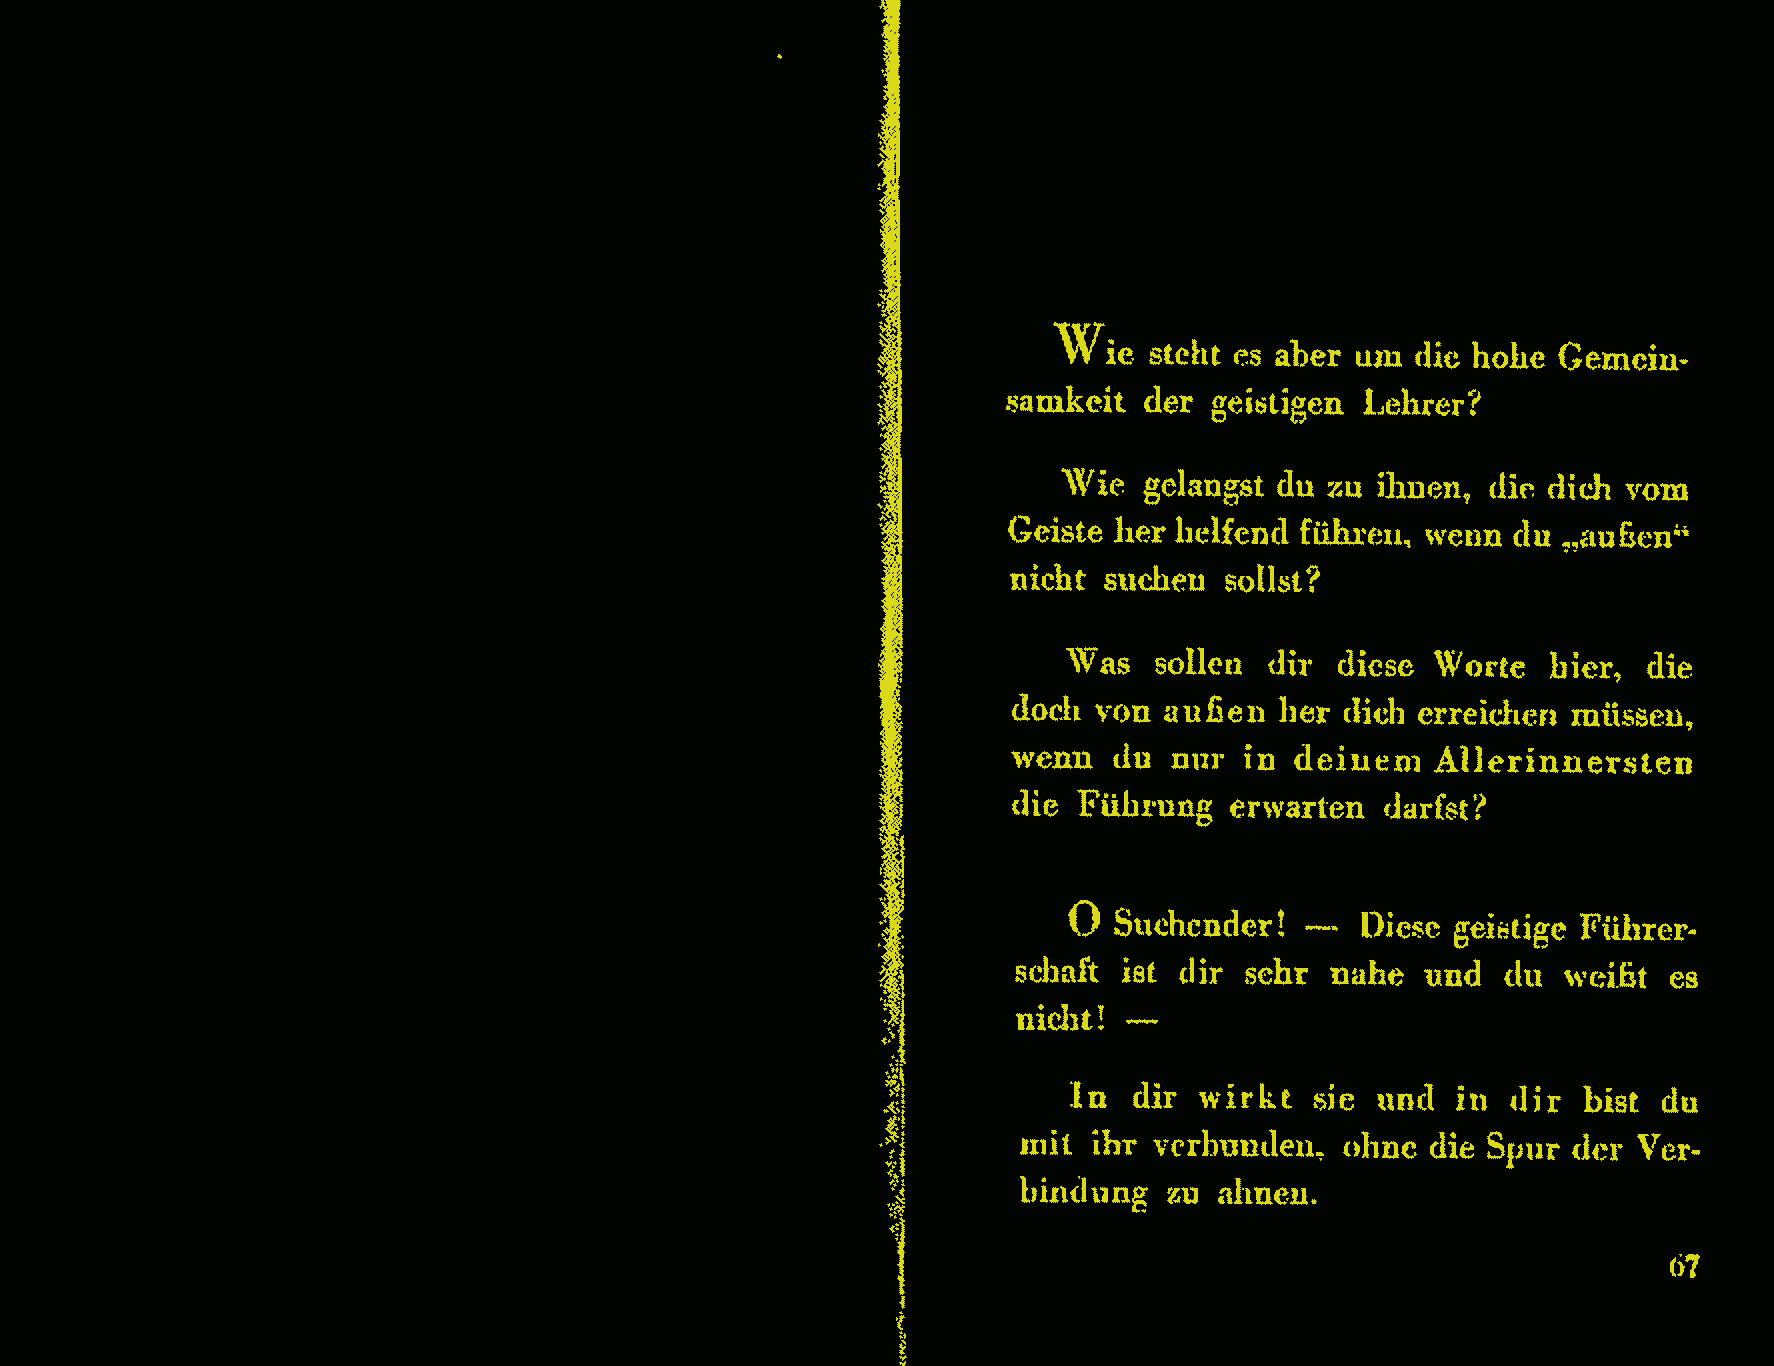 Wie steht es aber um die hohe Gemein-
samkeit der geistigen Lehrer?
Wie gelangst du zu ihnen, die dich vom
Geiste her helfend führen, wenn du „außen“
nicht suchen sollst?
Was sollen dir diese Worte hier, die
doch von außen her dich erreichen müssen,
wenn du nur in deinem Allerinnersten
die Führung erwarten darfst?
O Suchender! — Diese geistige Führer-
schaft ist dir sehr nahe und du weißt es
nicht! —
In dir wirkt sie und in dir bist du
mit ihr verbunden, ohne die Spur der Ver-
bindung zu ahnen.
67